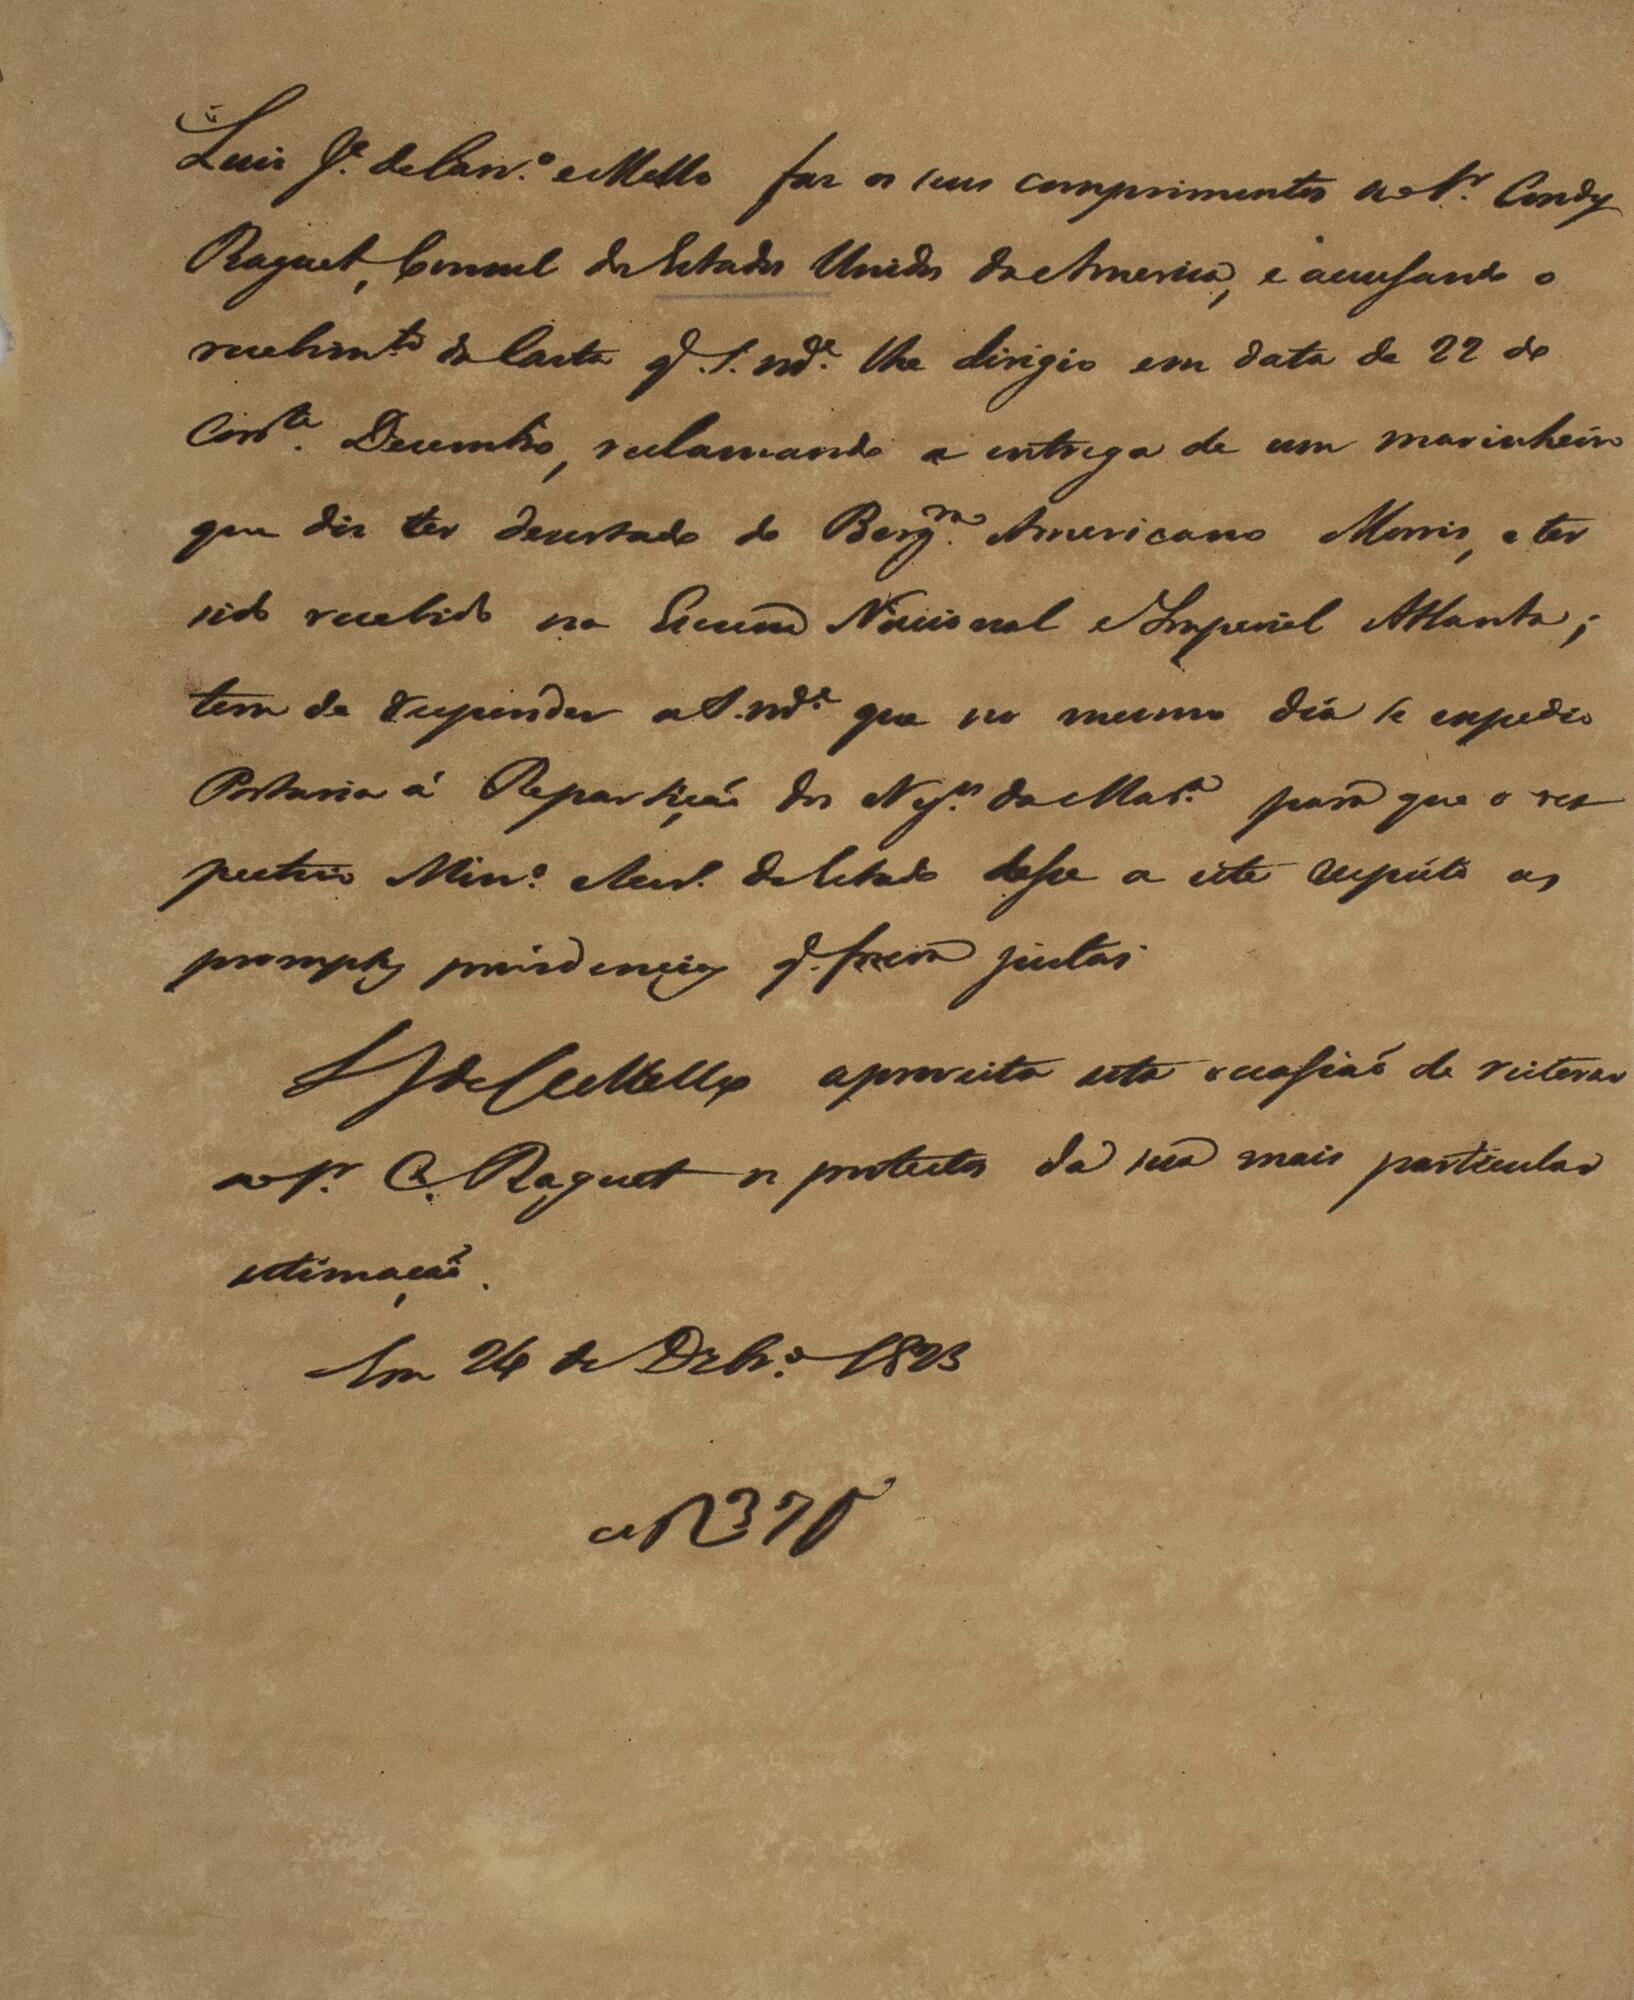 Luis J.e de Carv.o e Mello faz os seus comprimentos ao S.r Condy
Raguet, Consul dos Estados Unidos da America, e accusando o
recebim.to da Carta q. S. M.e lhe dirigio em data de 22 do
Corr.te Dezembro, reclamando a entrega de um marinheiro
que diz ter desertado do Berg.m Americano Morris, e ter
sido recebido na Escuna Nacional e Imperial Atlanta;
tem de responder a S. M.e que no mesmo dia se expedio
Portaria á Repartição dos Neg.os da Mar.a para que o res
pectivo Min.o e Secr. de Estado desse a este respeito as
promptas providencias q. fossem justas
L J de C e Mello aproveita esta occasião de reiterar
ao S.r C. Raguet os protestos da sua mais particular
estimação.
Em 24 de Dezbr.o 1823